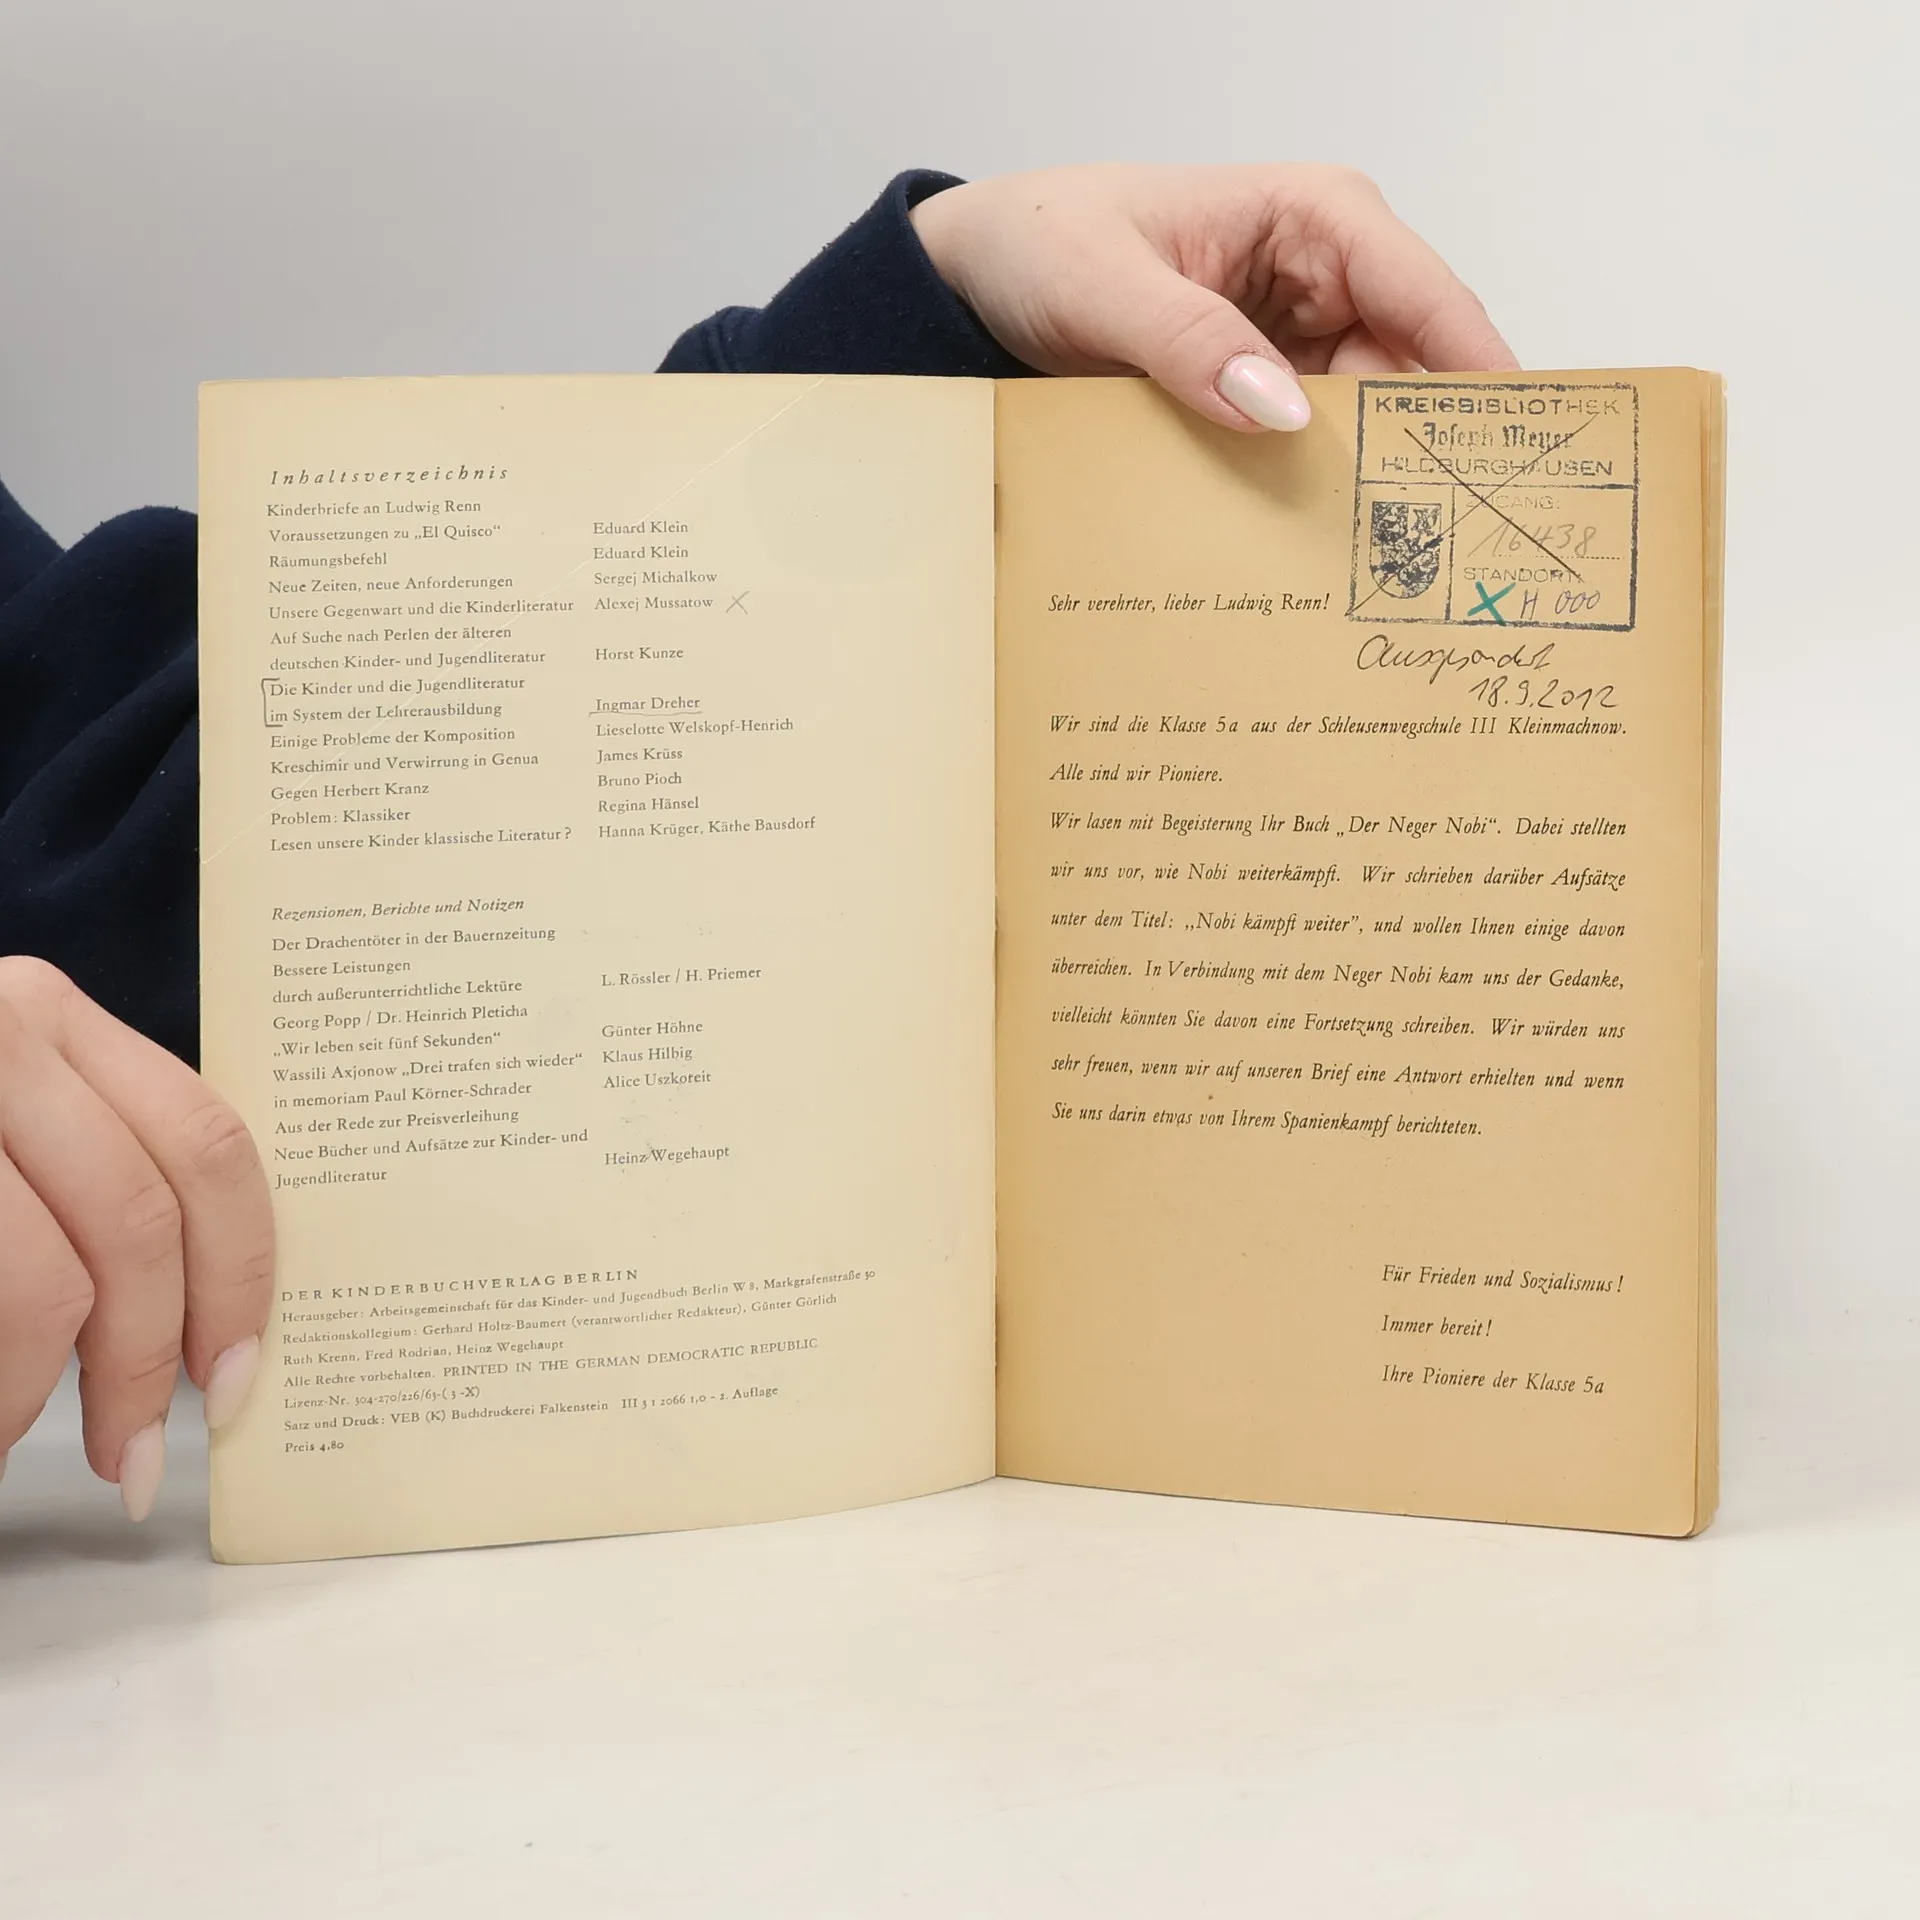 Inhaltsverzeichnis
Kinderbriefe an Ludwig Renn
Voraussetzungen zu „El Quisco“ Eduard Klein
Räumungsbefehl Eduard Klein
Neue Zeiten, neue Anforderungen Sergej Michalkow
Unsere Gegenwart und die Kinderliteratur Alexej Mussatow
Auf Suche nach Perlen der älteren
deutschen Kinder- und Jugendliteratur Horst Kunze
Die Kinder und die Jugendliteratur
im System der Lehrerausbildung Ingmar Dreher
Einige Probleme der Komposition Lieselotte Welskopf-Henrich
Kreschimir und Verwirrung in Genua James Krüss
Gegen Herbert Kranz Bruno Pioch
Problem: Klassiker Regina Hänsel
Lesen unsere Kinder klassische Literatur? Hanna Krüger, Käthe Bausdorf
Rezensionen, Berichte und Notizen
Der Drachentöter in der Bauernzeitung
Bessere Leistungen
durch außerunterrichtliche Lektüre L. Rössler / H. Priemer
Georg Popp / Dr. Heinrich Pleticha
„Wir leben seit fünf Sekunden“ Günter Höhne
Wassili Axjonow „Drei trafen sich wieder“ Klaus Hilbig
in memoriam Paul Körner-Schrader Alice Uszkoreit
Aus der Rede zur Preisverleihung
Neue Bücher und Aufsätze zur Kinder- und
Jugendliteratur Heinz Wegehaupt
DER KINDERBUCHVERLAG BERLIN
Herausgeber: Arbeitsgemeinschaft für das Kinder- und Jugendbuch Berlin W 8, Markgrafenstraße 30
Redaktionskollegium: Gerhard Holtz-Baumert (verantwortlicher Redakteur), Günter Görlich
Ruth Krenn, Fred Rodrian, Heinz Wegehaupt
Alle Rechte vorbehalten. PRINTED IN THE GERMAN DEMOCRATIC REPUBLIC
Lizenz-Nr. 304-270/226/63-( 3 -X)
Satz und Druck: VEB (K) Buchdruckerei Falkenstein III 3 1 2066 1,0 - 2. Auflage
Preis 4,80
KREISBIBLIOTHEK
Joseph Meyer
HILDBURGHAUSEN
ZUGANG:
16438
STANDORT:
X H 000
Ausgesondert
18.9.2012
Sehr verehrter, lieber Ludwig Renn!
Wir sind die Klasse 5a aus der Schleusenwegschule III Kleinmachnow.
Alle sind wir Pioniere.
Wir lasen mit Begeisterung Ihr Buch „Der Neger Nobi“. Dabei stellten
wir uns vor, wie Nobi weiterkämpft. Wir schrieben darüber Aufsätze
unter dem Titel: „Nobi kämpft weiter”, und wollen Ihnen einige davon
überreichen. In Verbindung mit dem Neger Nobi kam uns der Gedanke,
vielleicht könnten Sie davon eine Fortsetzung schreiben. Wir würden uns
sehr freuen, wenn wir auf unseren Brief eine Antwort erhielten und wenn
Sie uns darin etwas von Ihrem Spanienkampf berichteten.
Für Frieden und Sozialismus!
Immer bereit!
Ihre Pioniere der Klasse 5a